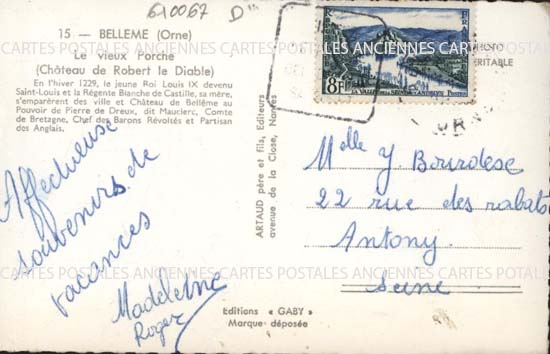 610067 D
15 — BELLEME (Orne)
Le vieux Porche
(Château de Robert le Diable)
En l'hiver 1229, le jeune Roi Louis IX devenu
Saint-Louis et la Régente Blanche de Castille, sa mère,
s'emparèrent des ville et Château de Bellême au
Pouvoir de Pierre de Dreux, dit Mauclerc, Comte
de Bretagne, Chef des Barons Révoltés et Partisan
des Anglais.
Affectueux
souvenirs de
vacances
Madeleine
Roger
ARTAUD père et fils, Editeurs
avenue de la Close, Nantes
Editions « GABY »
Marque déposée
8F
POSTES
PHOTO
VERITABLE
Melle Y Bourdese
22 rue des rabats
Antony
Seine
CARTES POSTALES ANCIENNES